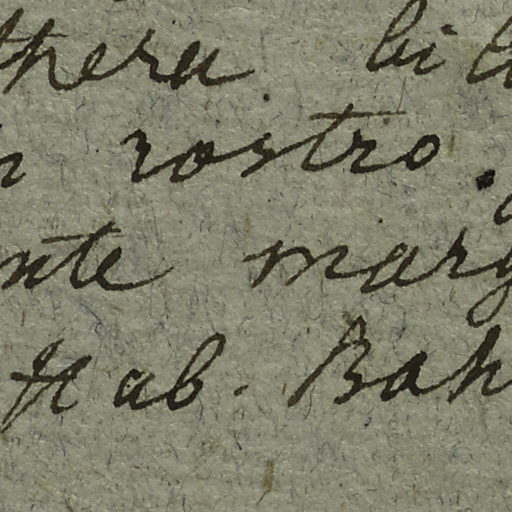 thera bil
rostro.
nte marg
Hab. Bah